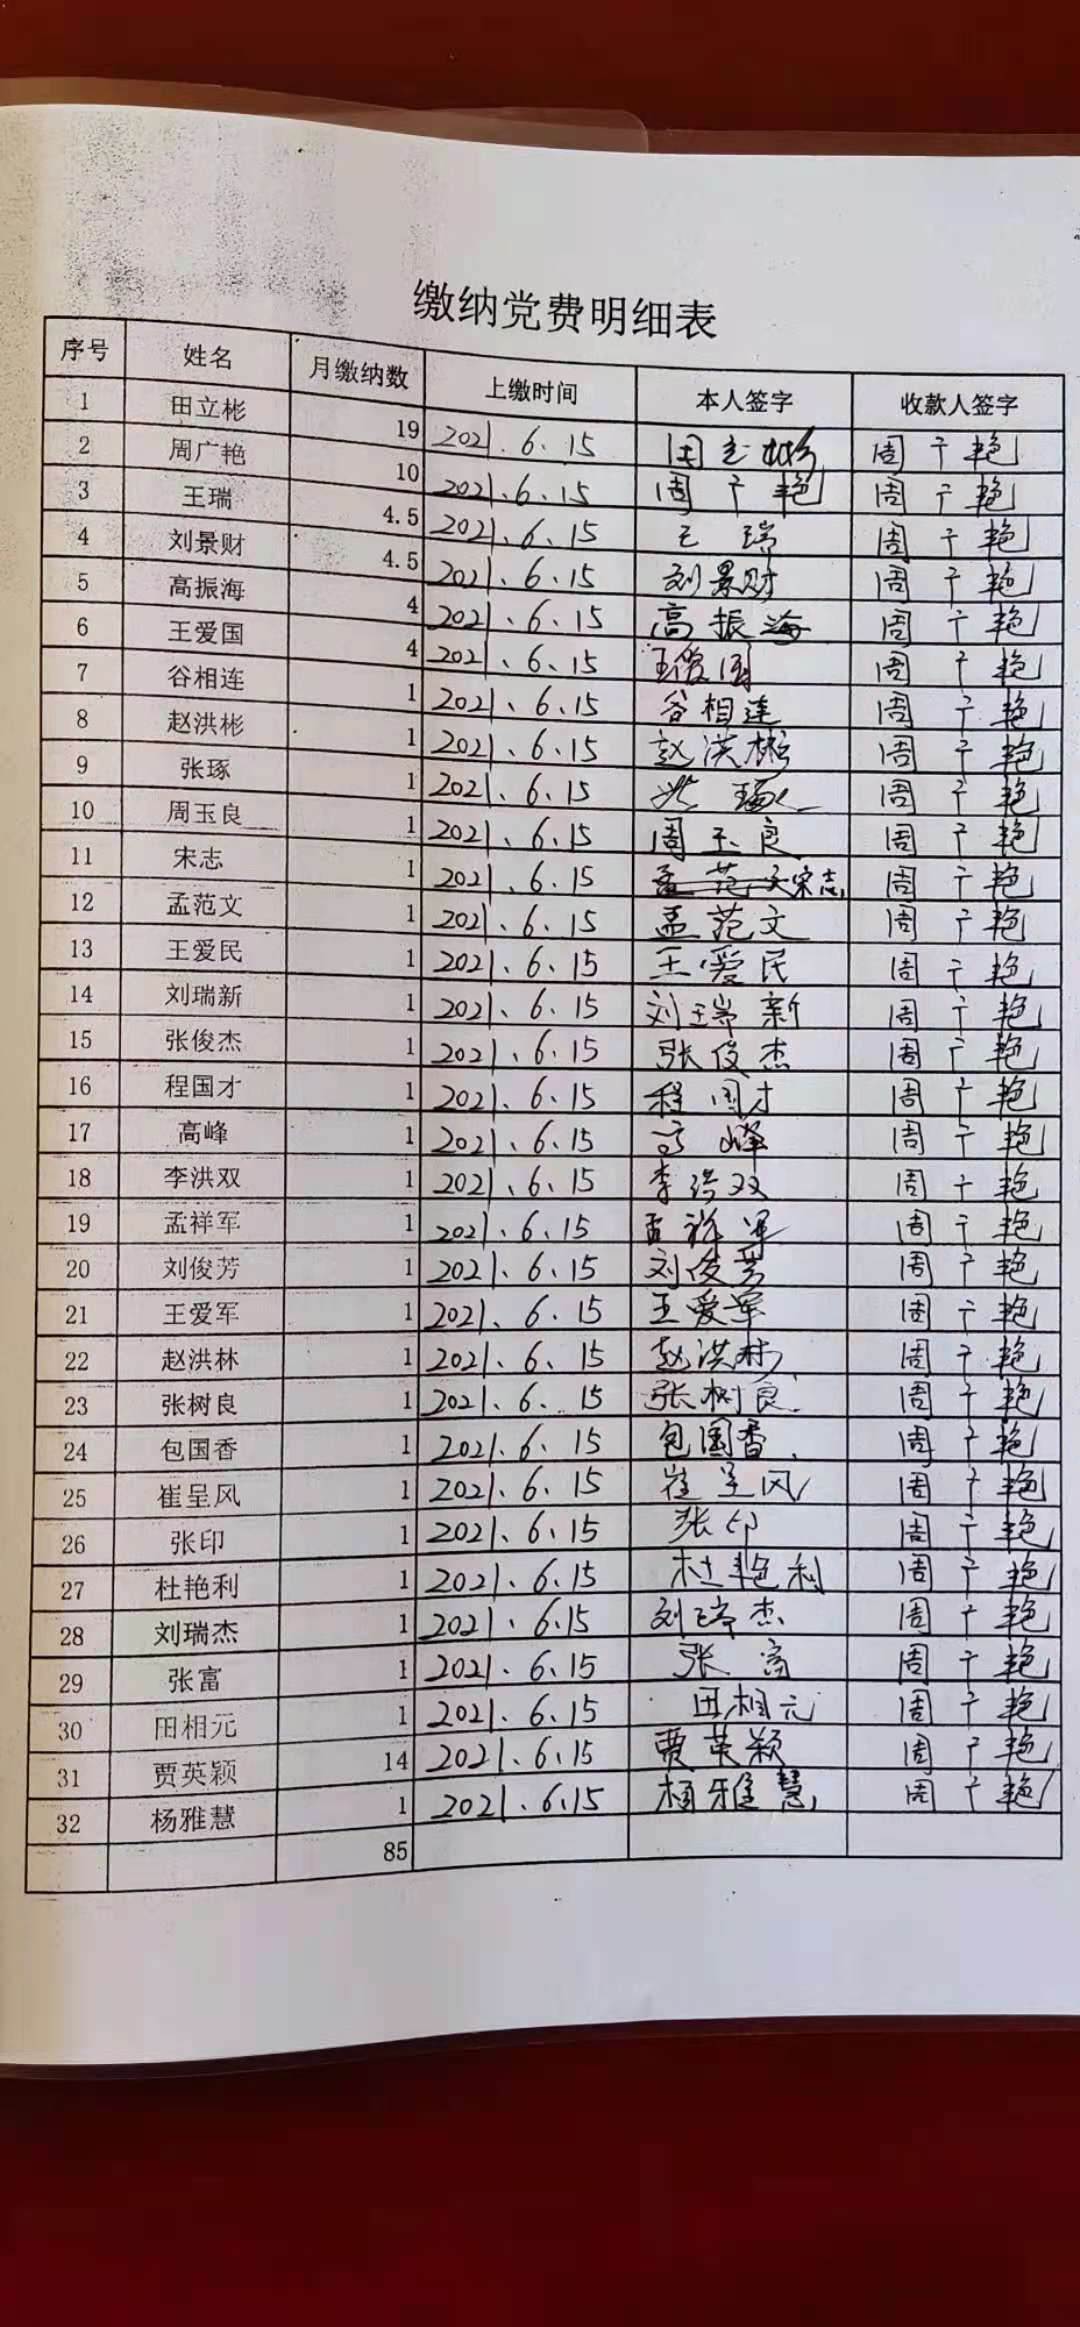 缴纳党费明细表
序号 姓名 月缴纳数 上缴时间 本人签字 收款人签字
1 田立彬 19 2021.6.15 田立彬 周广艳
2 周广艳 10 2021.6.15 周广艳 周广艳
3 王瑞 4.5 2021.6.15 王瑞 周广艳
4 刘景财 4.5 2021.6.15 刘景财 周广艳
5 高振海 4 2021.6.15 高振海 周广艳
6 王爱国 4 2021.6.15 王爱国 周广艳
7 谷相连 1 2021.6.15 谷相连 周广艳
8 赵洪彬 1 2021.6.15 赵洪彬 周广艳
9 张琢 1 2021.6.15 张琢 周广艳
10 周玉良 1 2021.6.15 周玉良 周广艳
11 宋志 1 2021.6.15 孟范文宋志 周广艳
12 孟范文 1 2021.6.15 孟范文 周广艳
13 王爱民 1 2021.6.15 王爱民 周广艳
14 刘瑞新 1 2021.6.15 刘瑞新 周广艳
15 张俊杰 1 2021.6.15 张俊杰 周广艳
16 程国才 1 2021.6.15 程国才 周广艳
17 高峰 1 2021.6.15 高峰 周广艳
18 李洪双 1 2021.6.15 李洪双 周广艳
19 孟祥军 1 2021.6.15 孟祥军 周广艳
20 刘俊芳 1 2021.6.15 刘俊芳 周广艳
21 王爱军 1 2021.6.15 王爱军 周广艳
22 赵洪林 1 2021.6.15 赵洪林 周广艳
23 张树良 1 2021.6.15 张树良 周广艳
24 包国香 1 2021.6.15 包国香 周广艳
25 崔呈风 1 2021.6.15 崔呈风 周广艳
26 张印 1 2021.6.15 张印 周广艳
27 杜艳利 1 2021.6.15 杜艳利 周广艳
28 刘瑞杰 1 2021.6.15 刘瑞杰 周广艳
29 张富 1 2021.6.15 张富 周广艳
30 田相元 1 2021.6.15 田相元 周广艳
31 贾英颖 14 2021.6.15 贾英颖 周广艳
32 杨雅慧 1 2021.6.15 杨雅慧 周广艳
85